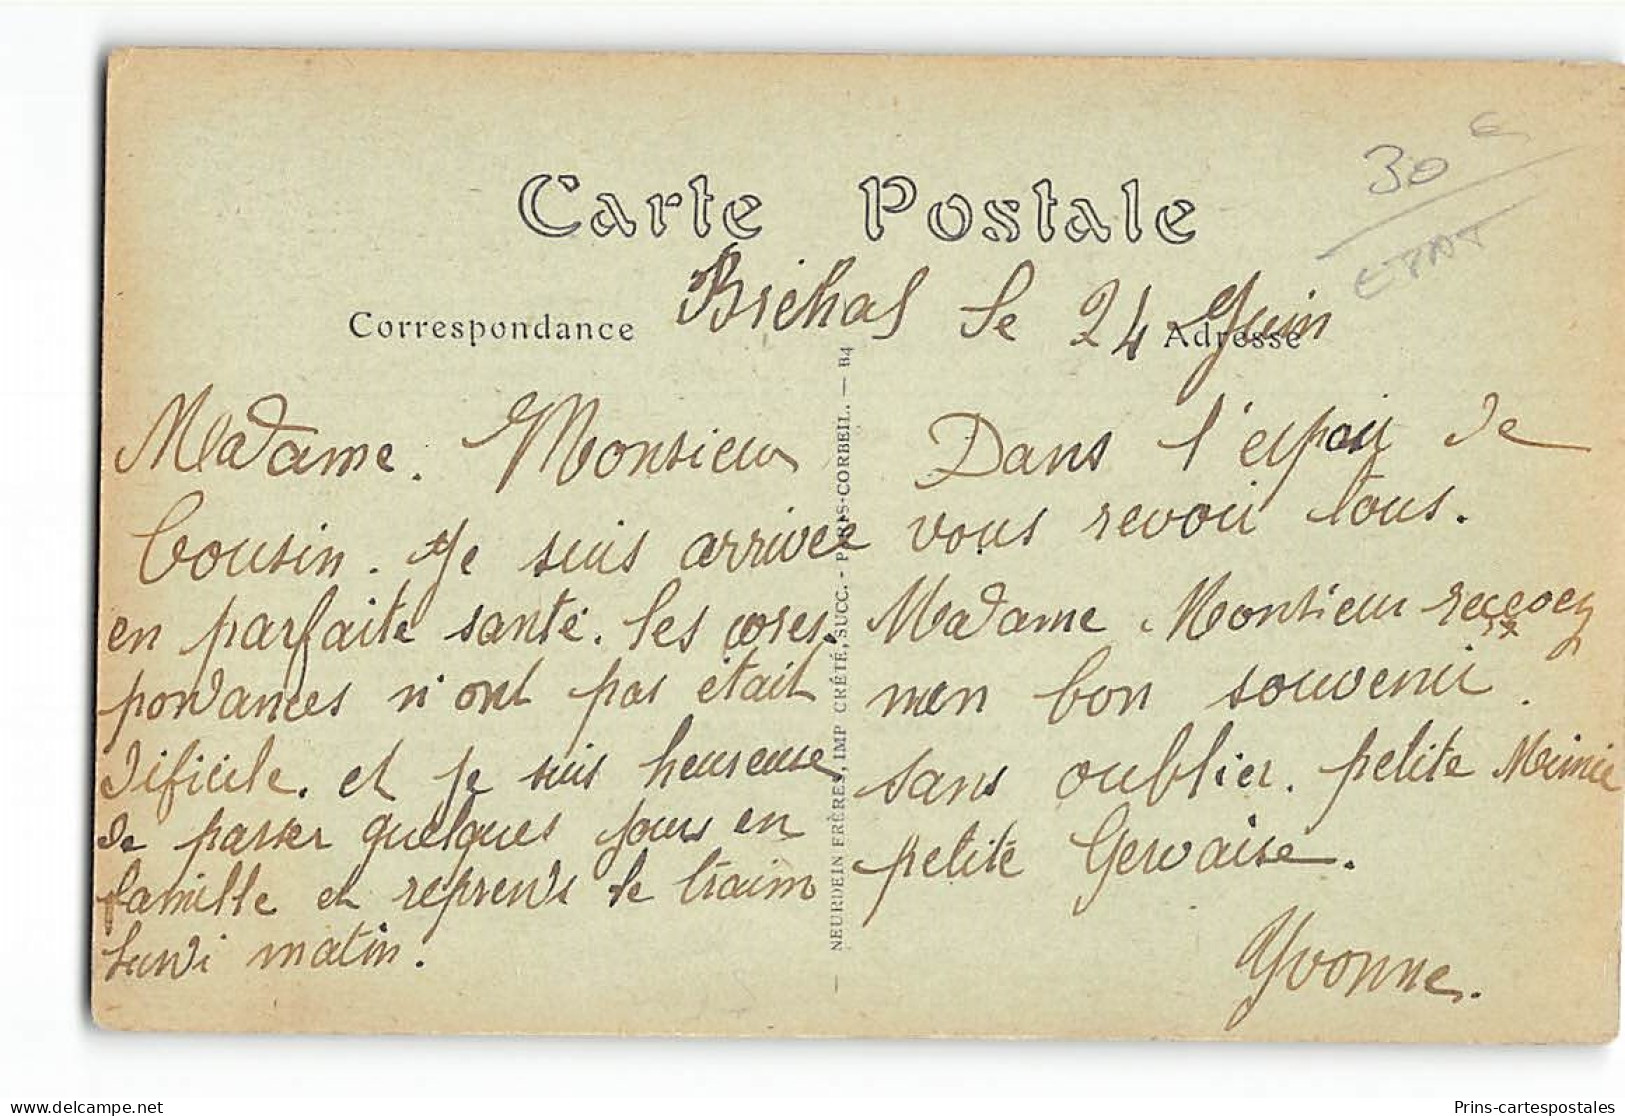 30 €
ETAT
Carte Postale
Bréhal le 24 Juin
Correspondance
Adresse
Madame. Monsieur
Cousin. Je suis arrivée
en parfaite santé. les cores.
pondances n'ont pas était
dificile. et je suis heureuse
de passer quelques jours en
famille et reprends le traim
lundi matin.
NEURDEIN FRÈRES, IMP CRÉTÉ, SUCC. - PARIS-CORBEIL. — B4
Dans l'espoir de
vous revoir tous.
Madame Monsieur recevez
mon bon souvenir.
sans oublier. petite Mimie
petite Gervaise.
Yvonne.
delcampe.net
Prins-cartespostales